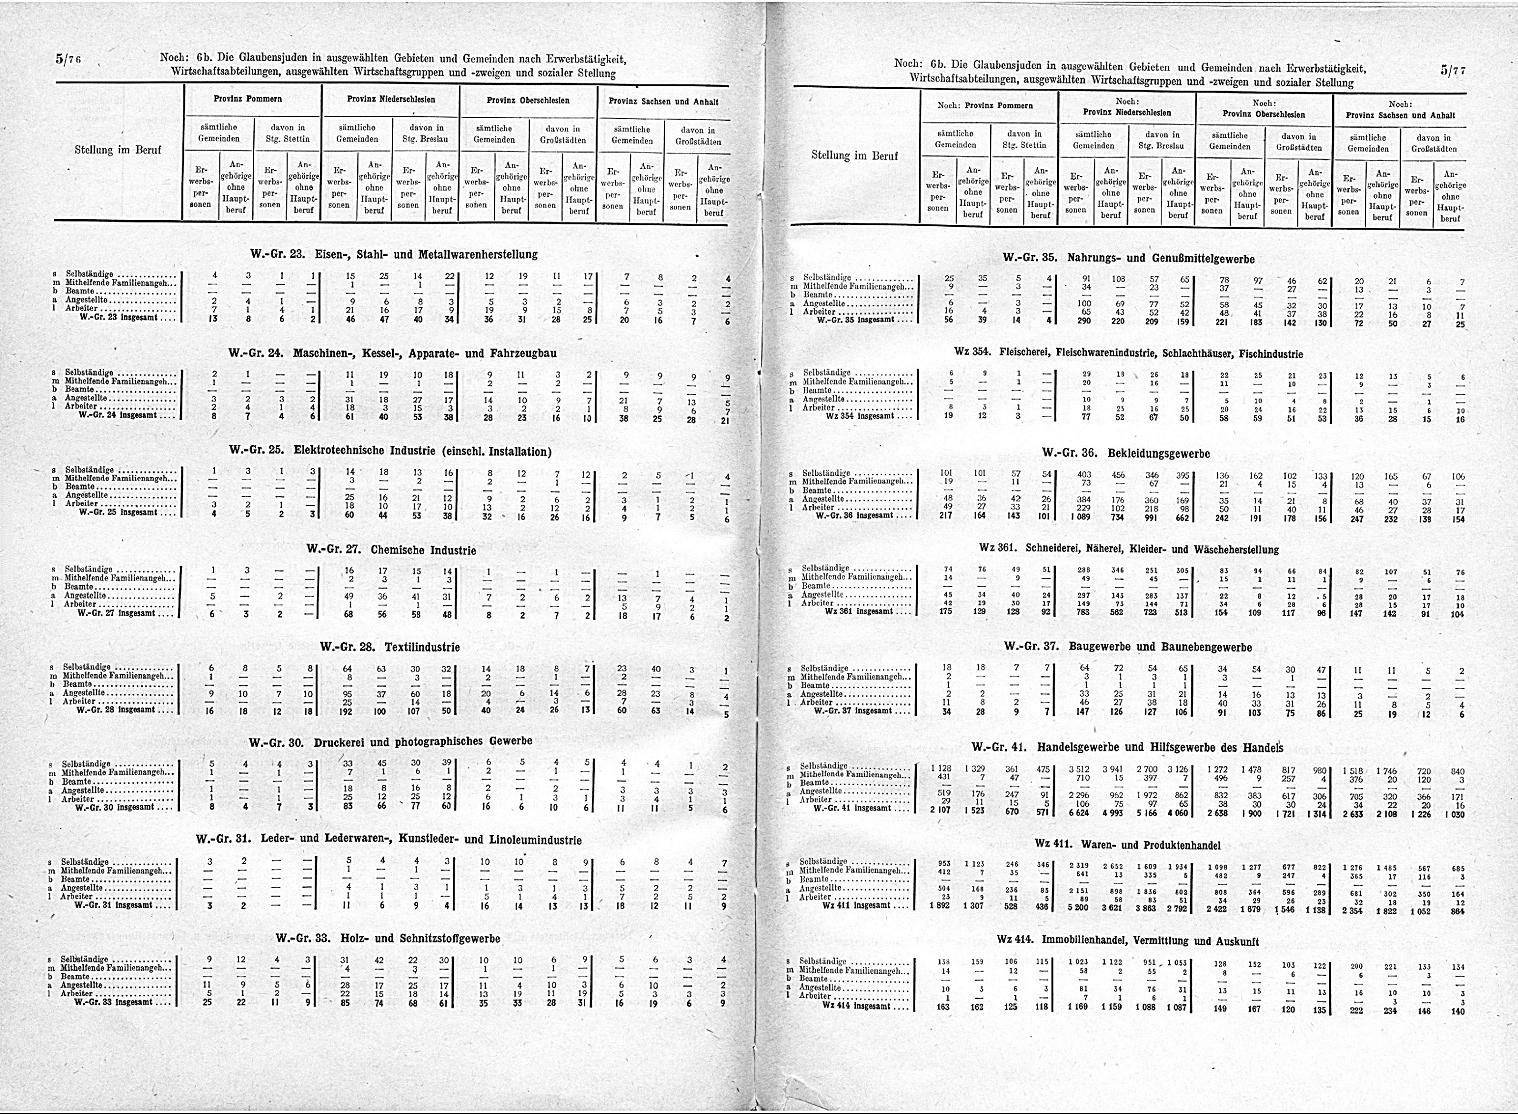 5/76
Noch: 6b. Die Glaubensjuden in ausgewählten Gebieten und Gemeinden nach Erwerbstätigkeit,
Wirtschaftsabteilungen, ausgewählten Wirtschaftsgruppen und -zweigen und sozialer Stellung
Stellung im Beruf
Provinz Pommern Provinz Niederschlesien Provinz Oberschlesien Provinz Sachsen und Anhalt
sämtliche Gemeinden davon in Stg. Stettin sämtliche Gemeinden davon in Stg. Breslau sämtliche Gemeinden davon in Großstädten sämtliche Gemeinden davon in Großstädten
Er-werbs-per-sonen An-gehörige ohne Haupt-beruf Er-werbs-per-sonen An-gehörige ohne Haupt-beruf Er-werbs-per-sonen An-gehörige ohne Haupt-beruf Er-werbs-per-sonen An-gehörige ohne Haupt-beruf Er-werbs-per-sonen An-gehörige ohne Haupt-beruf Er-werbs-per-sonen An-gehörige ohne Haupt-beruf Er-werbs-per-sonen An-gehörige ohne Haupt-beruf Er-werbs-per-sonen An-gehörige ohne Haupt-beruf
W.-Gr. 23. Eisen-, Stahl- und Metallwarenherstellung
s Selbständige 4 3 1 1 15 25 14 22 12 19 11 17 7 8 2 4
m Mithelfende Familienangeh... — — — — 1 — 1 — — — — — — — — —
b Beamte — — — — — — — — — — — — — — — —
a Angestellte 2 4 1 — 9 6 8 3 5 3 2 — 6 3 2 2
l Arbeiter 7 1 4 1 21 16 17 9 19 9 15 8 7 5 3 —
W.-Gr. 23 insgesamt 13 8 6 2 46 47 40 34 36 31 28 25 20 16 7 6
W.-Gr. 24. Maschinen-, Kessel-, Apparate- und Fahrzeugbau
s Selbständige 2 1 — — 11 19 10 18 9 11 3 2 9 9 9 9
m Mithelfende Familienangeh... 1 — — — 1 — 1 — 2 — 2 — — — — —
b Beamte — — — — — — — — — — — — — — — —
a Angestellte 3 2 3 2 31 18 27 17 14 10 9 7 21 7 13 5
l Arbeiter 2 4 1 4 18 3 15 3 3 2 2 1 8 9 6 7
W.-Gr. 24 insgesamt 8 7 4 6 61 40 53 38 28 23 16 10 38 25 28 21
W.-Gr. 25. Elektrotechnische Industrie (einschl. Installation)
s Selbständige 1 3 1 3 14 18 13 16 8 12 7 12 2 5 1 4
m Mithelfende Familienangeh... — — — — 3 — 2 — 2 — 1 — — — — —
b Beamte — — — — — — — — — — — — — — — —
a Angestellte — — — — 25 16 21 12 9 2 6 2 3 1 2 1
l Arbeiter 3 2 1 — 18 10 17 10 13 2 12 2 4 1 2 1
W.-Gr. 25 insgesamt 4 5 2 3 60 44 53 38 32 16 26 16 9 7 5 6
W.-Gr. 27. Chemische Industrie
s Selbständige 1 3 — — 16 17 15 14 1 — 1 — — 1 — —
m Mithelfende Familienangeh... — — — — 2 3 1 3 — — — — — — — —
b Beamte — — — — — — — — — — — — — — — —
a Angestellte 5 — 2 — 49 36 41 31 7 2 6 2 13 7 4 1
l Arbeiter — — — — 1 — 1 — — — — — 5 9 2 1
W.-Gr. 27 insgesamt 6 3 2 — 68 56 58 48 8 2 7 2 18 17 6 2
W.-Gr. 28. Textilindustrie
s Selbständige 6 8 5 8 64 63 30 32 14 18 8 7 23 40 3 1
m Mithelfende Familienangeh... 1 — — — 8 — 3 — 2 — 1 — 2 — — —
b Beamte — — — — — — — — — — — — — — — —
a Angestellte 9 10 7 10 95 37 60 18 20 6 14 6 28 23 8 4
l Arbeiter — — — — 25 — 14 — 4 — 3 — 7 — 3 —
W.-Gr. 28 insgesamt 16 18 12 18 192 100 107 50 40 24 26 13 60 63 14 5
W.-Gr. 30. Druckerei und photographisches Gewerbe
s Selbständige 5 4 4 3 33 45 30 39 6 5 4 5 4 4 1 2
m Mithelfende Familienangeh... 1 — 1 — 7 1 6 1 2 — 1 — 1 — — —
b Beamte — — — — — — — — — — — — — — — —
a Angestellte 1 — 1 — 18 8 16 8 2 — 2 — 3 3 3 3
l Arbeiter 1 — 1 — 25 12 25 12 6 1 3 1 3 4 1 1
W.-Gr. 30 insgesamt 8 4 7 3 83 66 77 60 16 6 10 6 11 11 5 6
W.-Gr. 31. Leder- und Lederwaren-, Kunstleder- und Linoleumindustrie
s Selbständige 3 2 — — 5 4 4 3 10 10 8 9 6 8 4 7
m Mithelfende Familienangeh... — — — — 1 — 1 — — — — — — — — —
b Beamte — — — — — — — — — — — — — — — —
a Angestellte — — — — 4 1 3 1 1 3 1 3 5 2 2 —
l Arbeiter — — — — 1 1 1 — 5 1 4 1 7 2 5 2
W.-Gr. 31 insgesamt 3 2 — — 11 6 9 4 16 14 13 13 18 12 11 9
W.-Gr. 33. Holz- und Schnitzstoffgewerbe
s Selbständige 9 12 4 3 31 42 22 30 10 10 6 9 5 6 3 4
m Mithelfende Familienangeh... — — — — 4 — 3 — 1 — 1 — — — — —
b Beamte — — — — — — — — — — — — — — — —
a Angestellte 11 9 5 6 28 17 25 17 11 4 10 3 6 10 — 2
l Arbeiter 5 1 2 — 22 15 18 14 13 19 11 19 5 3 3 3
W.-Gr. 33 insgesamt 25 22 11 9 85 74 68 61 35 33 28 31 16 19 6 9
Noch: 6b. Die Glaubensjuden in ausgewählten Gebieten und Gemeinden nach Erwerbstätigkeit,
Wirtschaftsabteilungen, ausgewählten Wirtschaftsgruppen und -zweigen und sozialer Stellung
5/77
Stellung im Beruf
Noch: Provinz Pommern Noch: Provinz Niederschlesien Noch: Provinz Oberschlesien Noch: Provinz Sachsen und Anhalt
sämtliche Gemeinden davon in Stg. Stettin sämtliche Gemeinden davon in Stg. Breslau sämtliche Gemeinden davon in Großstädten sämtliche Gemeinden davon in Großstädten
Er-werbs-per-sonen An-gehörige ohne Haupt-beruf Er-werbs-per-sonen An-gehörige ohne Haupt-beruf Er-werbs-per-sonen An-gehörige ohne Haupt-beruf Er-werbs-per-sonen An-gehörige ohne Haupt-beruf Er-werbs-per-sonen An-gehörige ohne Haupt-beruf Er-werbs-per-sonen An-gehörige ohne Haupt-beruf Er-werbs-per-sonen An-gehörige ohne Haupt-beruf Er-werbs-per-sonen An-gehörige ohne Haupt-beruf
W.-Gr. 35. Nahrungs- und Genußmittelgewerbe
s Selbständige 25 35 5 4 91 108 57 65 78 97 46 62 20 21 6 7
m Mithelfende Familienangeh... 9 — 3 — 34 — 23 — 37 — 27 — 13 — 3 —
b Beamte — — — — — — — — — — — — — — — —
a Angestellte 6 — 3 — 100 69 77 52 58 45 32 30 17 13 10 7
l Arbeiter 16 4 3 — 65 43 52 42 48 41 37 38 22 16 8 11
W.-Gr. 35 insgesamt 56 39 14 4 290 220 209 159 221 183 142 130 72 50 27 25
Wz 354. Fleischerei, Fleischwarenindustrie, Schlachthäuser, Fischindustrie
s Selbständige 6 9 1 — 29 18 26 18 22 25 21 23 12 13 5 6
m Mithelfende Familienangeh... 5 — 1 — 20 — 16 — 11 — 10 — 9 — 3 —
b Beamte — — — — — — — — — — — — — — — —
a Angestellte — — — — 10 9 9 7 5 10 4 8 2 — 1 —
l Arbeiter 8 3 1 — 18 25 16 25 20 24 16 22 13 15 6 10
Wz 354 insgesamt 19 12 3 — 77 52 67 50 58 59 51 53 36 28 15 16
W.-Gr. 36. Bekleidungsgewerbe
s Selbständige 101 101 57 54 403 456 346 395 136 162 102 133 120 165 67 106
m Mithelfende Familienangeh... 19 — 11 — 73 — 67 — 21 4 15 4 13 — 6 —
b Beamte — — — — — — — — — — — — — — — —
a Angestellte 48 36 42 26 384 176 360 169 35 14 21 8 68 40 37 31
l Arbeiter 49 27 33 21 229 102 218 98 50 11 40 11 46 27 28 17
W.-Gr. 36 insgesamt 217 164 143 101 1 089 734 991 662 242 191 178 156 247 232 138 154
Wz 361. Schneiderei, Näherei, Kleider- und Wäscheherstellung
s Selbständige 74 76 49 51 288 346 251 305 83 94 66 84 82 107 51 76
m Mithelfende Familienangeh... 14 — 9 — 49 — 45 — 15 1 11 1 9 — 6 —
b Beamte — — — — — — — — — — — — — — — —
a Angestellte 45 34 40 24 297 143 283 137 22 8 12 5 28 20 17 18
l Arbeiter 42 19 30 17 149 73 144 71 34 6 28 6 28 15 17 10
Wz 361 insgesamt 175 129 128 92 783 562 723 513 154 109 117 96 147 142 91 104
W.-Gr. 37. Baugewerbe und Baunebengewerbe
s Selbständige 18 18 7 7 64 72 54 65 34 54 30 47 11 11 5 2
m Mithelfende Familienangeh... 2 — — — 3 1 3 1 3 — 1 — — — — —
b Beamte 1 — — — 1 1 1 1 — — — — — — — —
a Angestellte 2 2 — — 33 25 31 21 14 16 13 13 3 — 2 —
l Arbeiter 11 8 2 — 46 27 38 18 40 33 31 26 11 8 5 4
W.-Gr. 37 insgesamt 34 28 9 7 147 126 127 106 91 103 75 86 25 19 12 6
W.-Gr. 41. Handelsgewerbe und Hilfsgewerbe des Handels
s Selbständige 1 128 1 329 361 475 3 512 3 941 2 700 3 126 1 272 1 478 817 980 1 518 1 746 720 840
m Mithelfende Familienangeh... 431 7 47 — 710 15 397 7 496 9 257 4 376 20 120 3
b Beamte — — — — — — — — — — — — — — — —
a Angestellte 519 176 247 91 2 296 962 1 972 862 832 383 617 306 705 320 366 171
l Arbeiter 29 11 15 5 106 75 97 65 38 30 30 24 34 22 20 16
W.-Gr. 41 insgesamt 2 107 1 523 670 571 6 624 4 993 5 166 4 060 2 638 1 900 1 721 1 314 2 633 2 108 1 226 1 030
Wz 411. Waren- und Produktenhandel
s Selbständige 953 1 123 246 346 2 319 2 652 1 609 1 934 1 098 1 277 677 822 1 276 1 485 567 685
m Mithelfende Familienangeh... 412 7 35 — 641 13 335 5 482 9 247 4 365 17 116 3
b Beamte — — — — — — — — — — — — — — — —
a Angestellte 504 168 236 85 2 151 898 1 836 802 808 364 596 289 681 302 350 164
l Arbeiter 23 9 11 5 89 58 83 51 34 29 26 23 32 18 19 12
Wz 411 insgesamt 1 892 1 307 528 436 5 200 3 621 3 863 2 792 2 422 1 679 1 546 1 138 2 354 1 822 1 052 864
Wz 414. Immobilienhandel, Vermittlung und Auskunft
s Selbständige 138 159 106 115 1 023 1 122 951 1 053 128 152 103 122 200 221 133 134
m Mithelfende Familienangeh... 14 — 12 — 58 2 55 2 8 — 6 — 6 — 3 —
b Beamte — — — — — — — — — — — — — — — —
a Angestellte 10 3 6 3 81 34 76 31 13 15 11 13 16 10 10 3
l Arbeiter 1 — 1 — 7 1 6 1 — — — — — 3 — 3
Wz 414 insgesamt 163 162 125 118 1 169 1 159 1 088 1 087 149 167 120 135 222 234 146 140